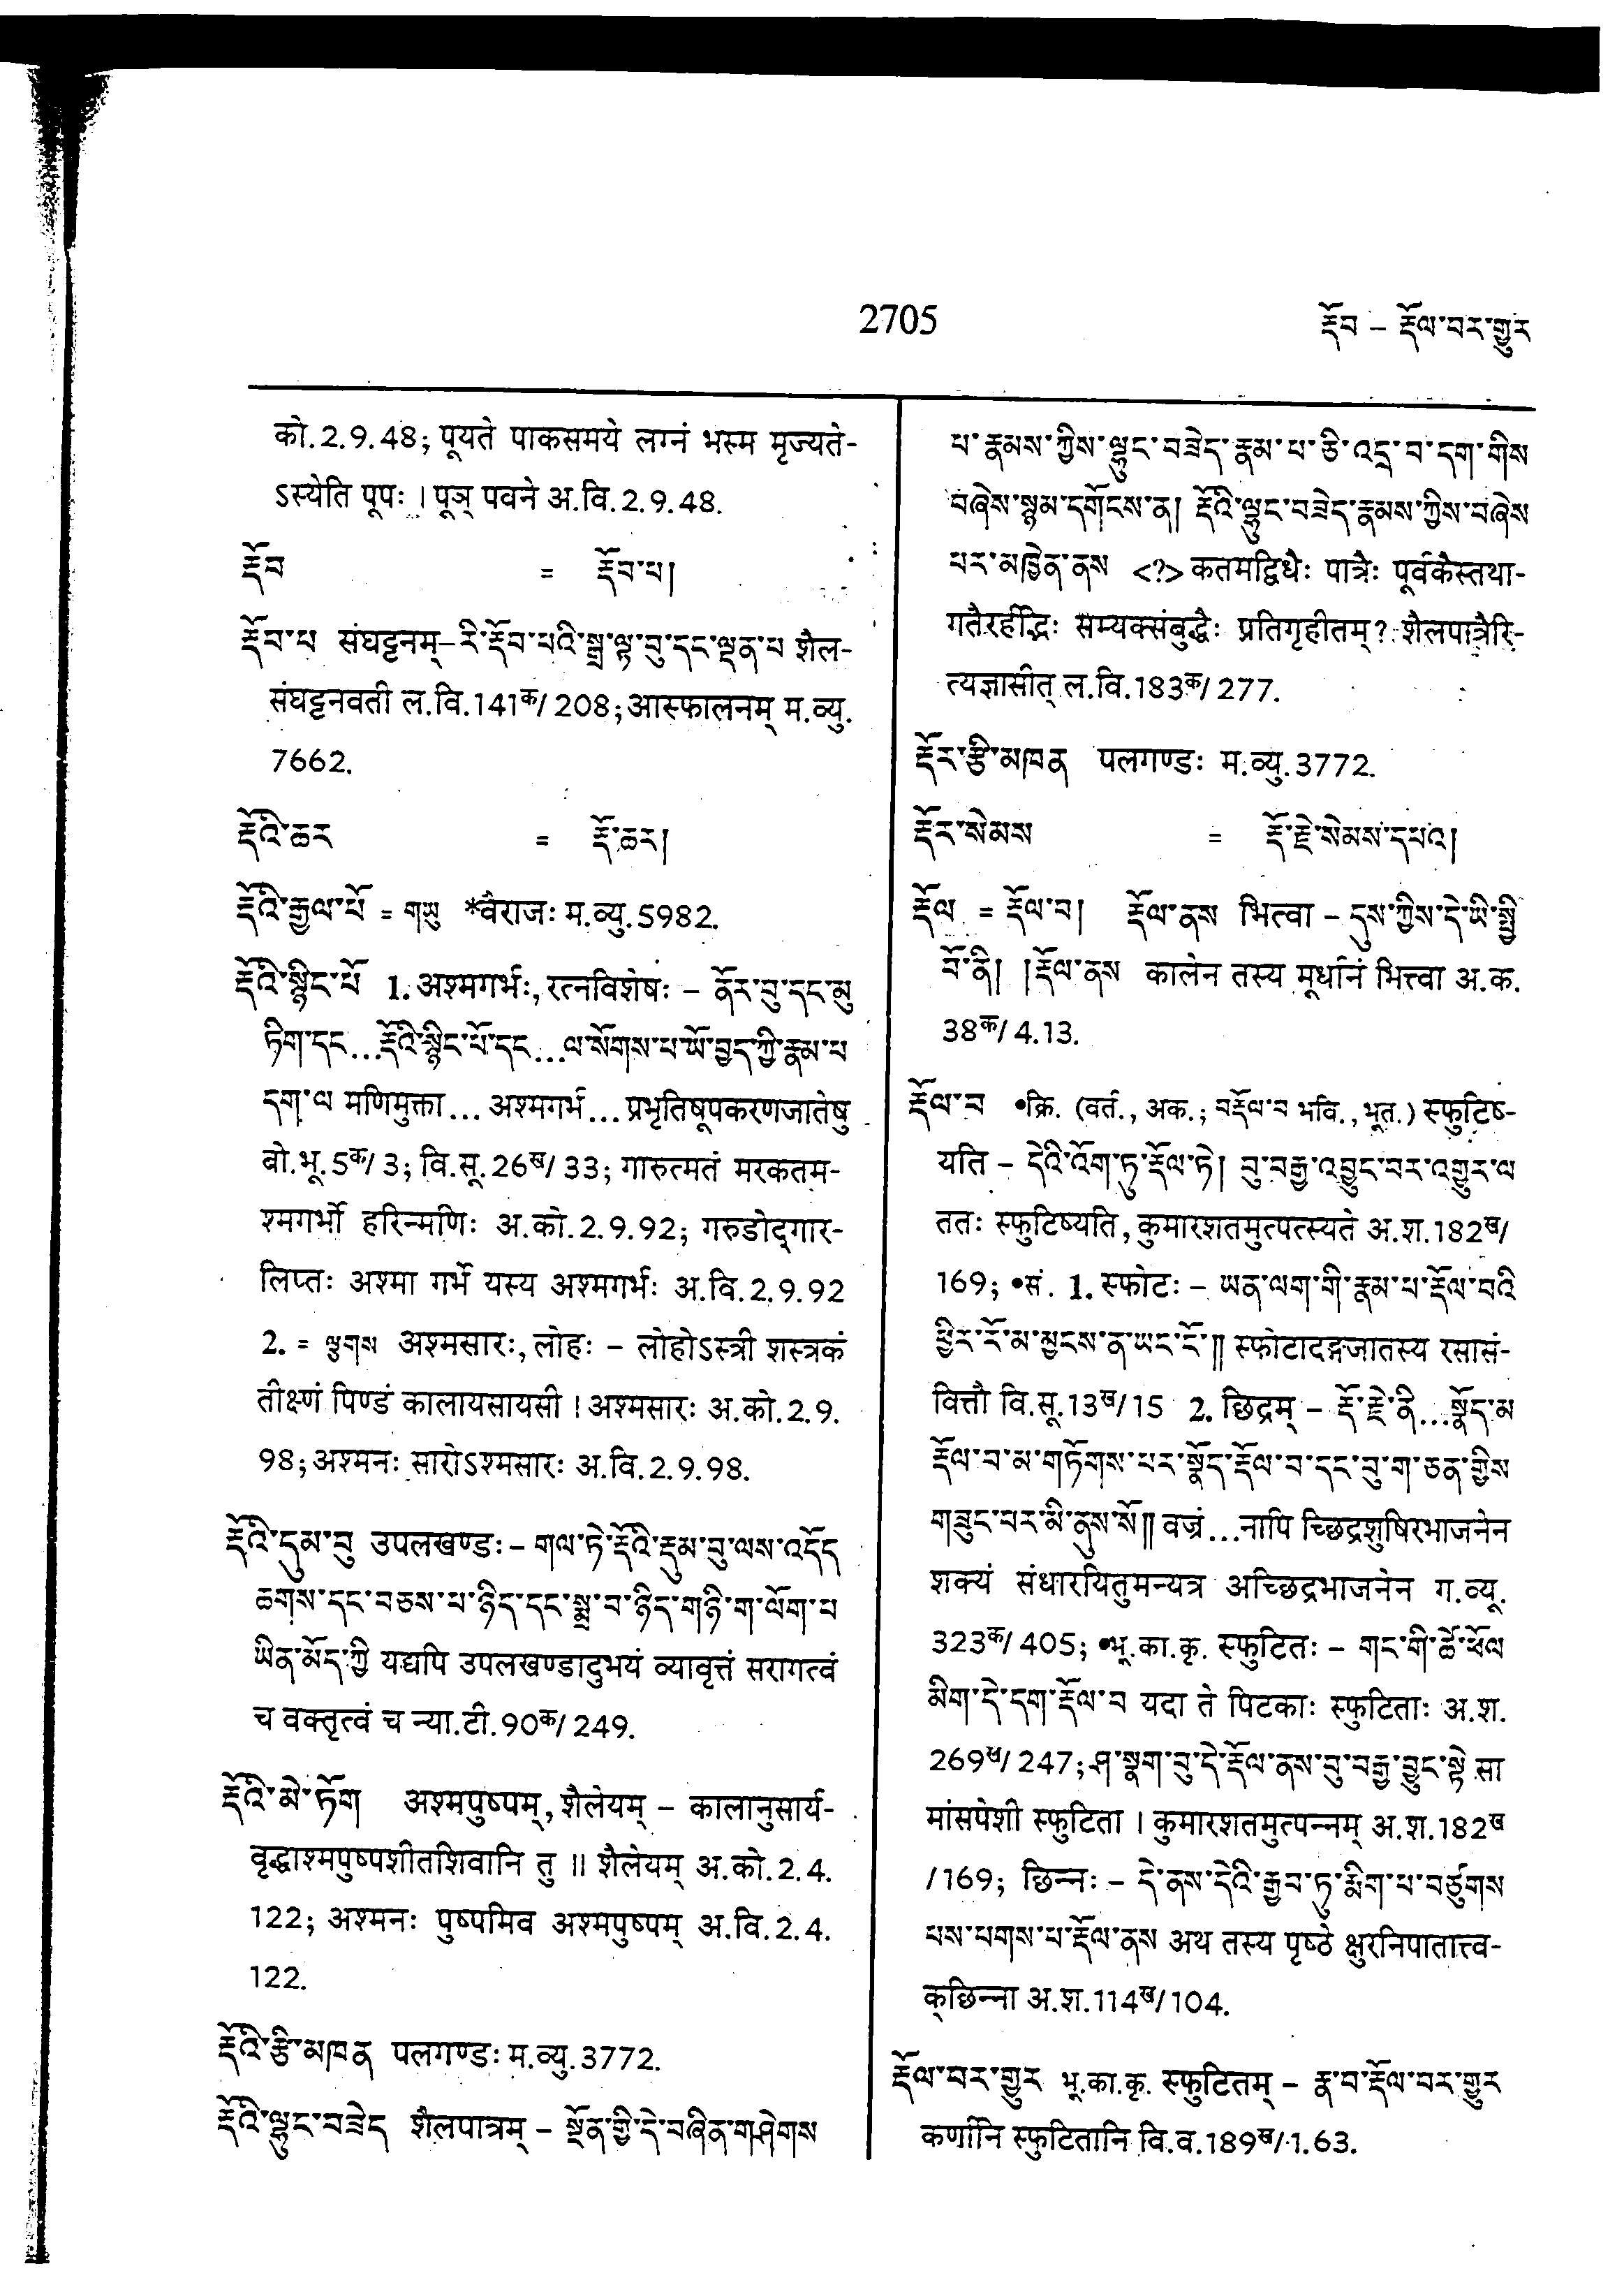 2705
རྡོབ – རྡོལ་བར་གྱུར
को.2.9.48; पूयते पाकसमये लग्नं भस्म मृज्यते-
ऽस्येति पूपः । पूञ् पवने अ.वि.2.9.48.
རྡོབ = རྡོབ་པ།
རྡོབ་པ संघट्टनम्– རི་རྡོབ་པའི་སྒྲ་ལྟ་བུ་དང་ལྡན་པ शैल-
संघट्टनवती ल.वि.141क/208; आस्फालनम् म.व्यु.
7662.
རྡོའི་ཆར = རྡོ་ཆར།
རྡོའི་རྒྱལ་པོ = གཡུ *वैराजः म.व्यु.5982.
རྡོའི་སྙིང་པོ 1. अश्मगर्भः, रत्नविशेषः – ནོར་བུ་དང་མུ
ཏིག་དང...རྡོའི་སྙིང་པོ་དང...ལ་སོགས་པ་ཡོ་བྱད་ཀྱི་རྣམ་པ
དག་ལ मणिमुक्ता... अश्मगर्भ... प्रभृतिषूपकरणजातेषु
बो.भू.5क/3; वि.सू.26ख/33; गारुत्मतं मरकतम-
श्मगर्भो हरिन्मणिः अ.को.2.9.92; गरुडोद्गार-
लिप्तः अश्मा गर्भे यस्य अश्मगर्भः अ.वि.2.9.92
2. = ལྕགས अश्मसारः, लोहः – लोहोऽस्त्री शस्त्रकं
तीक्ष्णं पिण्डं कालायसायसी । अश्मसारः अ.को.2.9.
98; अश्मनः सारोऽश्मसारः अ.वि.2.9.98.
རྡོའི་དུམ་བུ उपलखण्डः – གལ་ཏེ་རྡོའི་དུམ་བུ་ལས་འདོད
ཆགས་དང་བཅས་པ་ཉིད་དང་སྨྲ་བ་ཉིད་གཉི་ག་ལོག་པ
ཡིན་མོད་ཀྱི यद्यपि उपलखण्डादुभयं व्यावृत्तं सरागत्वं
च वक्तृत्वं च न्या.टी.90क/249.
རྡོའི་མེ་ཏོག अश्मपुष्पम्, शैलेयम् – कालानुसार्य-
वृद्धाश्मपुष्पशीतशिवानि तु ॥ शैलेयम् अ.को.2.4.
122; अश्मनः पुष्पमिव अश्मपुष्पम् अ.वि.2.4.
122.
རྡོའི་རྩི་མཁན पलगण्डः म.व्यु.3772.
རྡོའི་ལྷུང་བཟེད शैलपात्रम् – སྔོན་གྱི་དེ་བཞིན་གཤེགས
པ་རྣམས་ཀྱིས་ལྷུང་བཟེད་རྣམ་པ་ཅི་འདྲ་བ་དག་གིས
བཞེས་སྙམ་དགོངས་ན། རྡོའི་ལྷུང་བཟེད་རྣམས་ཀྱིས་བཞེས
པར་མཁྱེན་ནས <?> कतमद्विधैः पात्रैः पूर्वकैस्तथा-
गतैरर्हद्भिः सम्यक्संबुद्धैः प्रतिगृहीतम्? शैलपात्रैरि-
त्यज्ञासीत् ल.वि.183क/277.
རྡོར་རྩི་མཁན पलगण्डः म.व्यु.3772.
རྡོར་སེམས = རྡོ་རྗེ་སེམས་དཔའ།
རྡོལ = རྡོལ་བ། རྡོལ་ནས भित्वा – དུས་ཀྱིས་དེ་ཡི་སྤྱི
བོ་ནི། །རྡོལ་ནས कालेन तस्य मूर्धानं भित्त्वा अ.क.
38क/4.13.
རྡོལ་བ •क्रि. (वर्त., अक.; བརྡོལ་བ भवि., भूत.) स्फुटिष-
यति – དེའི་འོག་ཏུ་རྡོལ་ཏེ། བུ་བརྒྱ་འབྱུང་བར་འགྱུར་ལ
ततः स्फुटिष्यति, कुमारशतमुत्पत्स्यते अ.श.182ख/
169; •सं. 1. स्फोटः – ཡན་ལག་གི་རྣམ་པ་རྡོལ་བའི
ཕྱིར་རོ་མ་མྱངས་ན་ཡང་ངོ་༎ स्फोटादङ्गजातस्य रसासं-
वित्तौ वि.सू.13ख/15 2. छिद्रम् – རྡོ་རྗེ་ནི...སྣོད་མ
རྡོལ་བ་མ་གཏོགས་པར་སྣོད་རྡོལ་བ་དང་བུ་ག་ཅན་གྱིས
གཟུང་བར་མི་ནུས་སོ༎ वज्रं...नापि च्छिद्रशुषिरभाजनेन
शक्यं संधारयितुमन्यत्र अच्छिद्रभाजनेन ग.व्यू.
323क/405; •भू.का.कृ. स्फुटितः – གང་གི་ཚེ་ཕོལ
མིག་དེ་དག་རྡོལ་བ यदा ते पिटकाः स्फुटिताः अ.श.
269ख/247; ཤ་སྣག་བུ་དེ་རྡོལ་ནས་བུ་བརྒྱ་བྱུང་སྟེ सा
मांसपेशी स्फुटिता । कुमारशतमुत्पन्नम् अ.श.182ख
/169; छिन्नः – དེ་ནས་དེའི་རྒྱབ་ཏུ་རྨིག་པ་བཙུགས
པས་པགས་པ་རྡོལ་ནས अथ तस्य पृष्ठे क्षुरनिपातात्त्व-
क्छिन्ना अ.श.114ख/104.
རྡོལ་བར་གྱུར भू.का.कृ. स्फुटितम् – རྣ་བ་རྡོལ་བར་གྱུར
कर्णानि स्फुटितानि वि.व.189ख/1.63.